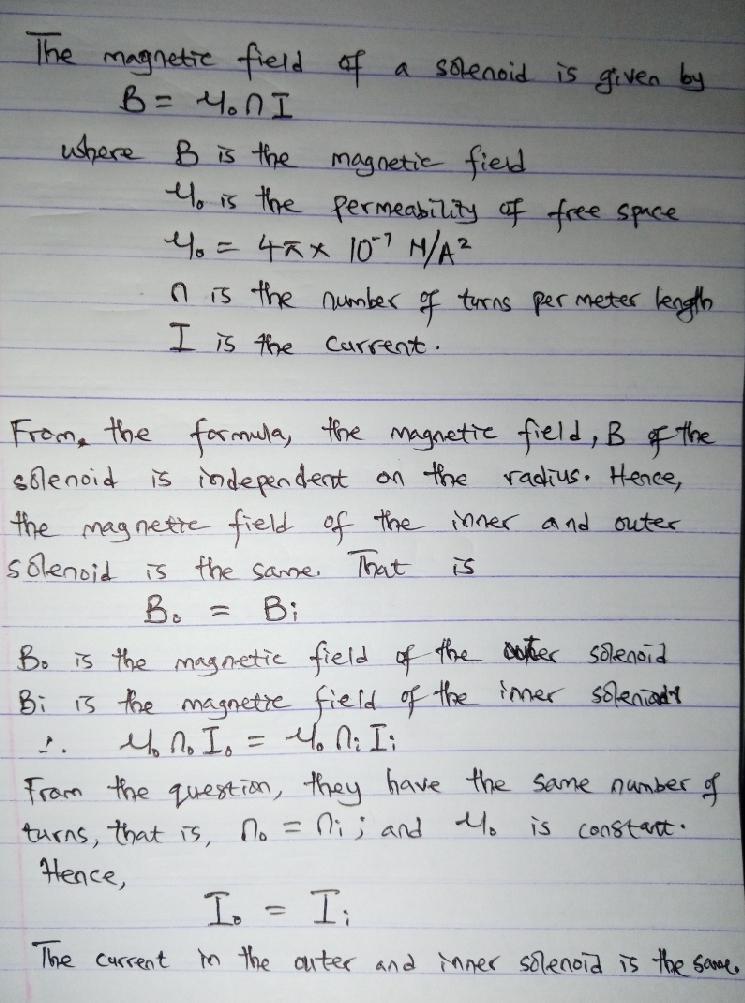 The magnetic field of a solenoid is given by
B = μ₀nI
where B is the magnetic field
μ₀ is the permeability of free space
μ₀ = 4π × 10⁻⁷ N/A²
n is the number of turns per meter length
I is the current.
From, the formula, the magnetic field, B of the
solenoid is independent on the radius. Hence,
the magnetic field of the inner and outer
solenoid is the same. That is
B₀ = Bᵢ
B₀ is the magnetic field of the outer solenoid
Bi is the magnetic field of the inner solenoid
∴ μ₀n₀I₀ = μ₀nᵢIᵢ
From the question, they have the same number of
turns, that is, n₀ = nᵢ; and μ₀ is constant.
Hence,
I₀ = Iᵢ
The current in the outer and inner solenoid is the same.